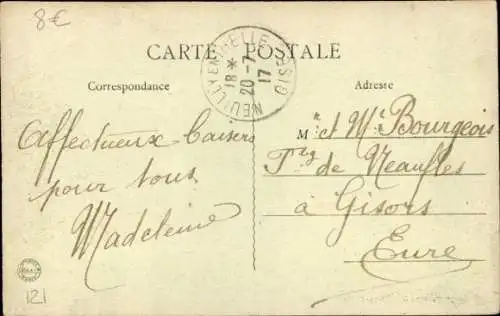 8€
CARTE POSTALE
NEUILLY EN THELLE OISE
18 *
20-7
17
Correspondance
Adresse
Affectueux baisers
pour tous
Madeleine
Mr et Me Bourgeois
Fbg de Neaufles
à Gisors
Eure
121